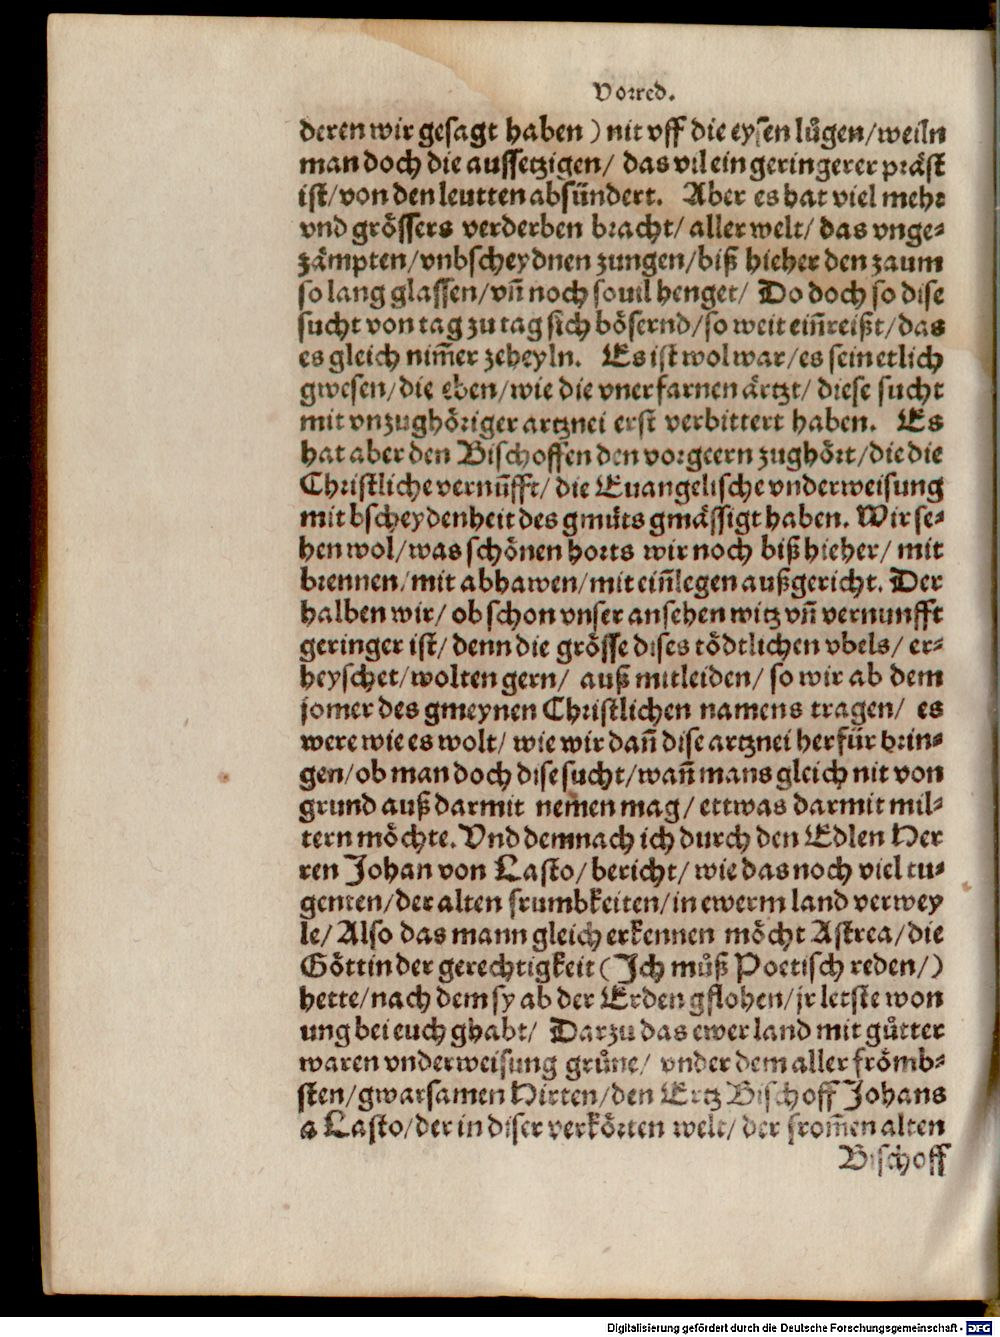 Vorred.
deren wir gesagt haben ) nit vff die eysen lůgen/weiln
man doch die aussetzigen/ das vil ein geringerer präst
ist/von den leutten absündert. Aber es hat viel mehr
vnd grössers verderben bracht/ aller welt/ das vnge-
zämpten/vnbscheydnen zungen/biß hieher den zaum
so lang glassen/vñ noch souil henget/ Do doch so dise
sucht von tag zu tag sich bösernd/so weit eiñreißt/das
es gleich nim̃er zeheyln. Es ist wol war/es sein etlich
gwesen/die eben/wie die vnerfarnen ärtzt/ diese sucht
mit vnzughöriger artznei erst verbittert haben. Es
hat aber den Bischoffen den vorgeern zughört/die die
Christliche vernüfft/ die Euangelische vnderweisung
mit bscheydenheit des gmüts gmässigt haben. Wir se-
hen wol/was schönen horts wir noch biß hieher/ mit
brennen/mit abhawen/mit eiñlegen außgericht. Der
halben wir/ ob schon vnser ansehen witz vñ vernunfft
geringer ist/ denn die grösse dises tödtlichen vbels/ er-
heyschet/wolten gern/ auß mitleiden/ so wir ab dem
jomer des gmeynen Christlichen namens tragen/ es
were wie es wolt/ wie wir dañ dise artznei herfür brin-
gen/ob man doch dise sucht/wañ mans gleich nit von
grund auß darmit nemen mag/ ettwas darmit mil-
tern möchte. Vnd demnach ich durch den Edlen Her
ren Johan von Lasto/bericht/ wie das noch viel tu-
genten/der alten frumbkeiten/in ewerm land verwey
le/ Also das mann gleich erkennen möcht Astrea/die
Göttin der gerechtigkeit (Ich můß Poetisch reden/)
hette/nach dem sy ab der Erden gflohen/jr letste won
ung bei euch ghabt/ Darzu das ewer land mit gůtter
waren vnderweisung grůne/ vnder dem aller frömb-
sten/gwarsamen Hirten/den Ertz Bischoff Johans
a Lasto/der in diser verkörten welt/ der from̃en alten
Bischoff
Digitalisierung gefördert durch die Deutsche Forschungsgemeinschaft - DFG